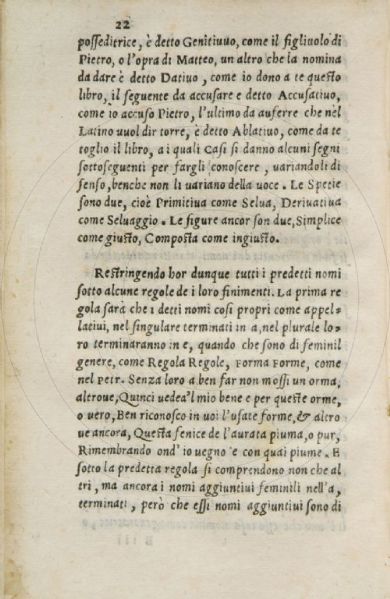 22
posseditrice, è detto Genitiuuo, come il figliuolo di
Pietro, o l'opra di Matteo, un altro che la nomina
da dare è detto Datiuo, come io dono a te questo
libro, il seguente da accusare e detto Accusatiuo,
come io accuso Pietro, l'ultimo da auferre che nel
Latino uuol dir torre, è detto Ablatiuo, come da te
toglio il libro, a i quali Casi si danno alcuni segni
sottoseguenti per fargli conoscere, uariandoli di
senso, benche non li uariano della uoce. Le Spetie
sono due, cioè Primitiua come Selua, Deriuatiua
come Seluaggio. Le figure ancor son due, Simplice
come giusto, Composta come ingiusto.
Restringendo hor dunque tutti i predetti nomi
sotto alcune regole de i loro finimenti. La prima re
gola sarà che i detti nomi cosi propri come appel=
latiui, nel singulare terminati in a, nel plurale lo=
ro terminaranno in e, quando che sono di feminil
genere, come Regola Regole, Forma Forme, come
nel petr. Senza loro a ben far non mossi un orma,
altroue, Quinci uedea'l mio bene e per queste orme,
o uero, Ben riconosco in uoi l'usate forme, & altro
ue ancora, Questa fenice de l'aurata piuma, o pur,
Rimembrando ond'io uegno e con quai piume. E
sotto la predetta regola si comprendono non che al
tri, ma ancora i nomi aggiuntiui feminili nell'a,
terminati, però che essi nomi aggiuntiui sono di